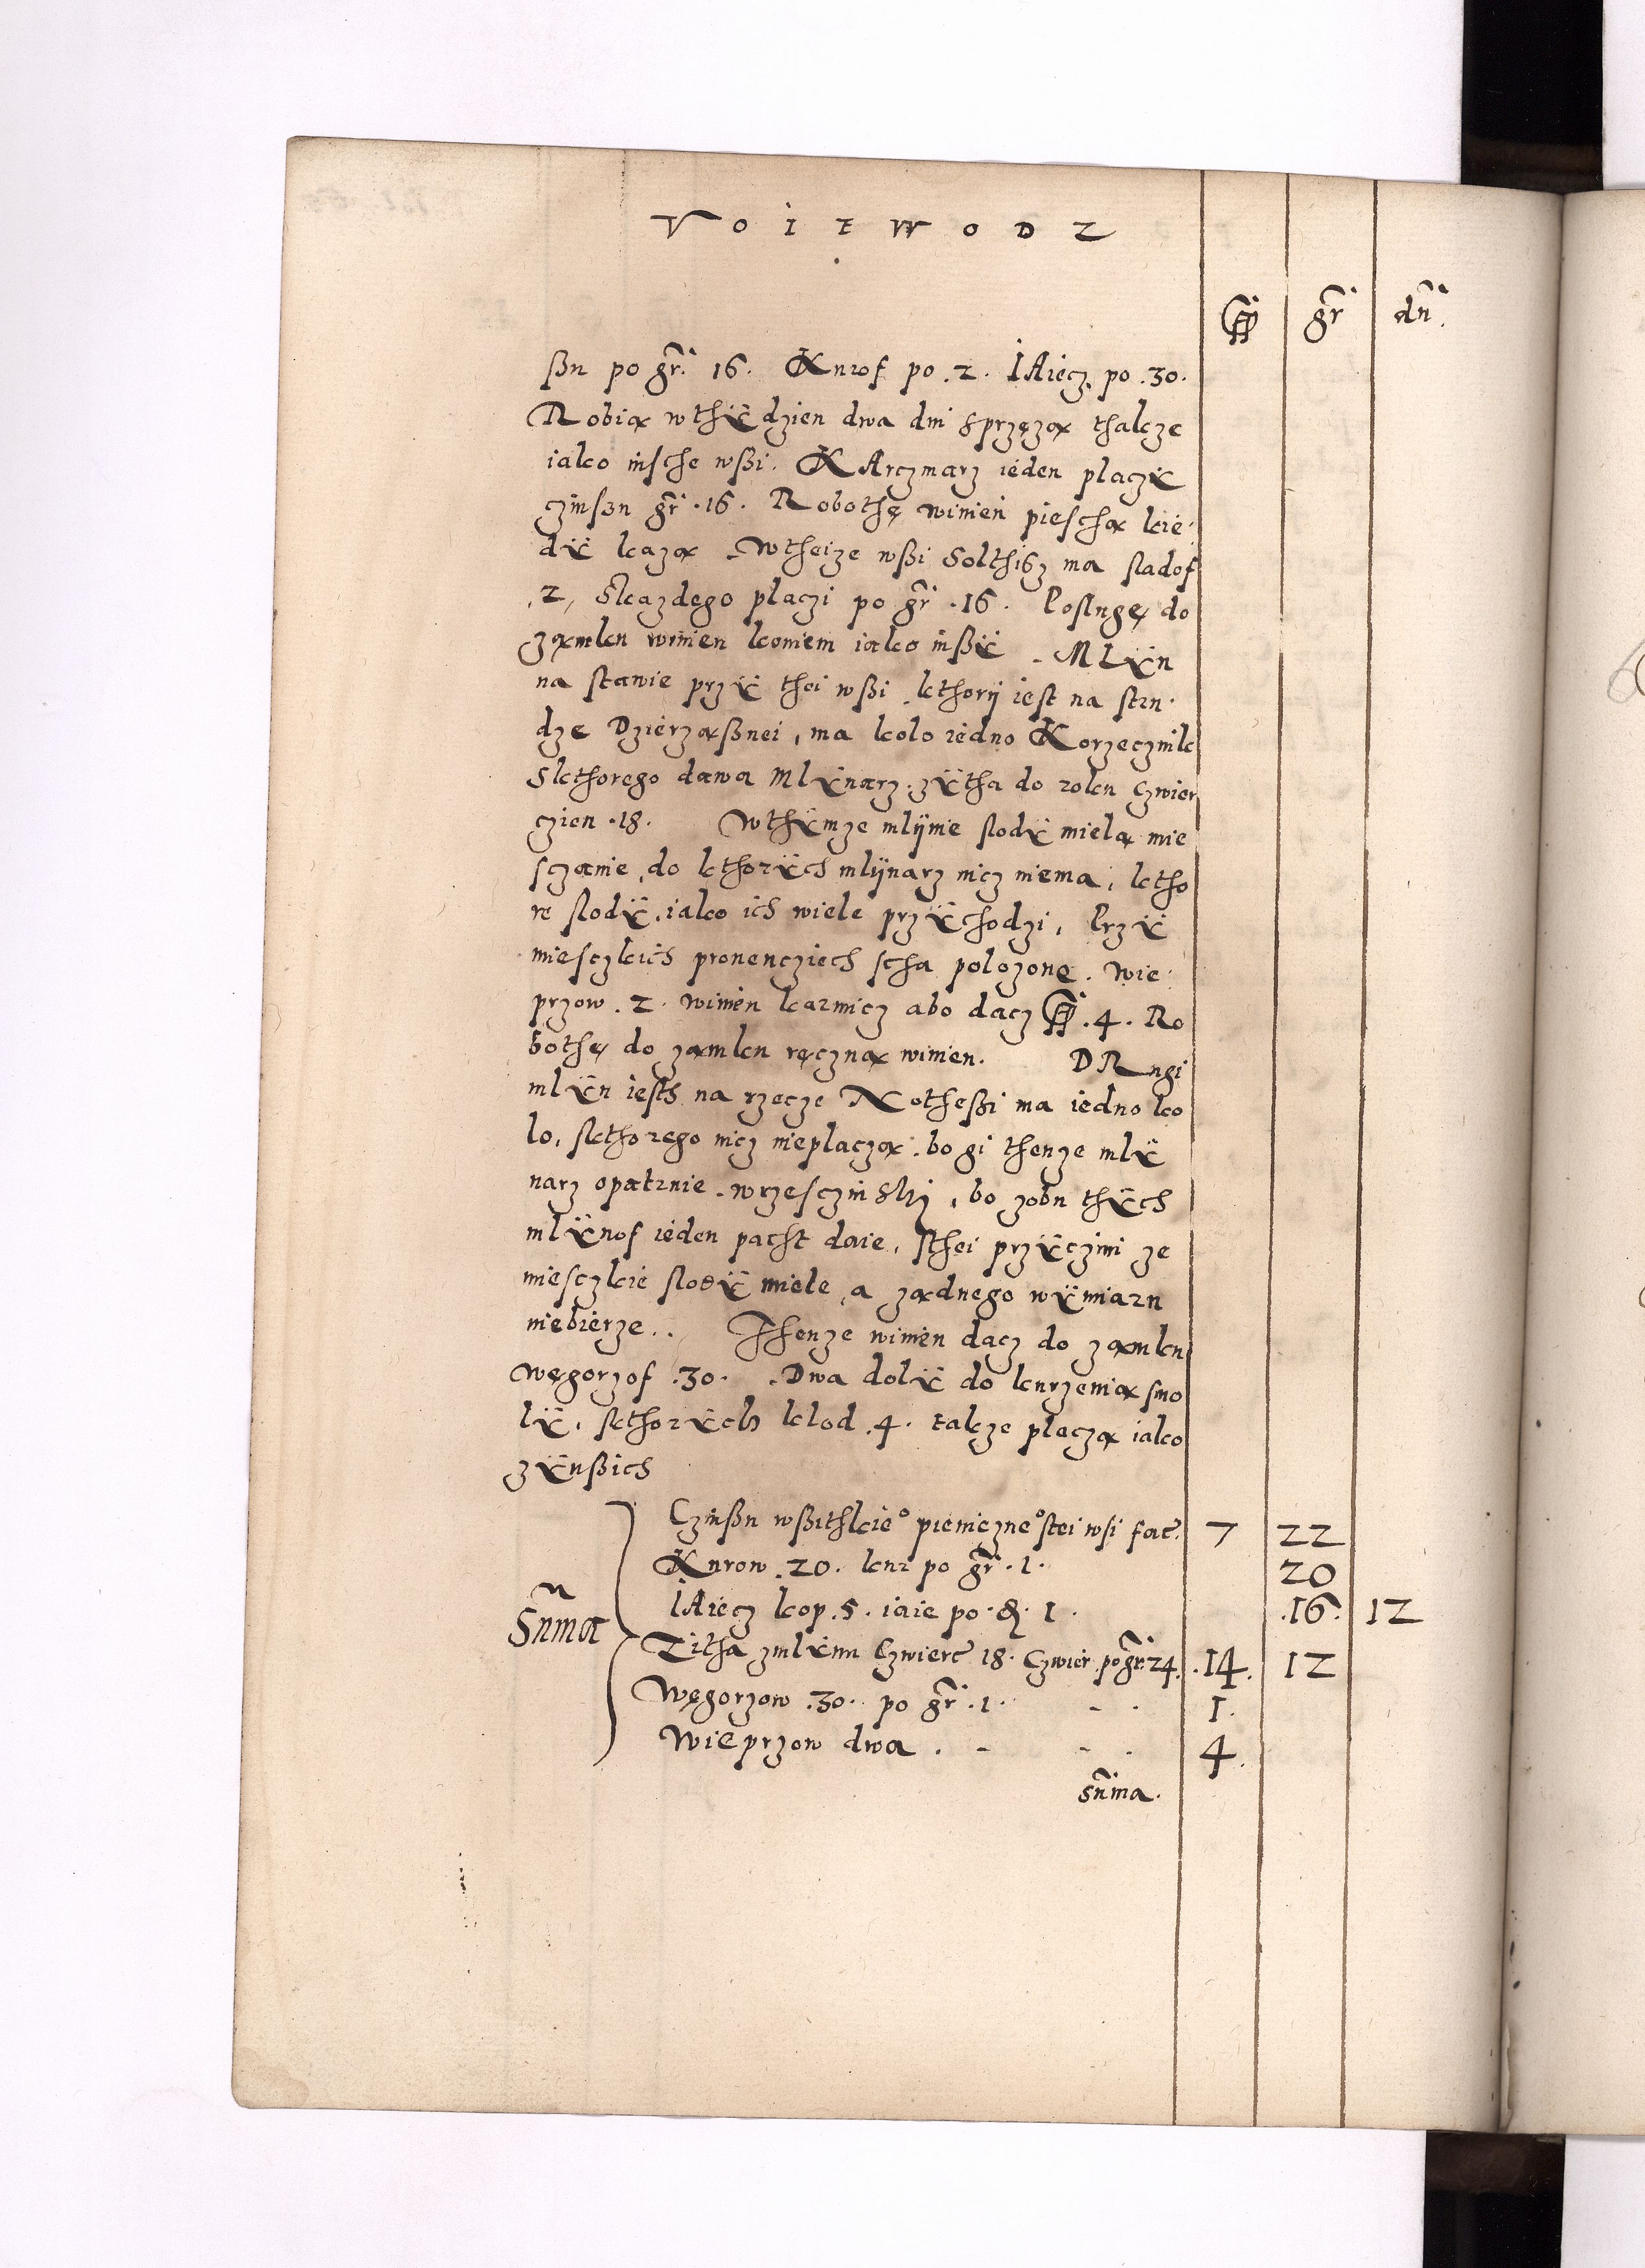 VOIEWODZ
fl gr̃ dñ.
ßu po gr̃. 16. Kurof po .2. IAiecz po .30.
Robią wthÿdzien dwa dni sprzęzą thakze
iako insche wßi. KArczmarz ieden placzÿ
czinszu gr̃ .16. Robothę winien pieschą kie-
dÿ kazą. Wtheize wßi Solthisz ma sladof
.2, Skazdego placzi po gr̃ .16. Poslugę do
zamku winien koniem iako inßÿ. MLÿn
na stawie przÿ thei wßi kthorij iest na stru-
dze Dzierzaßnei, ma kolo iedno Korzecznik
Skthorego dawa Mlÿnarz zÿtha do roku Czwier
czien .18. Wthÿmze mlijnie slodÿ mielą mie
sczanie, do kthorÿch mlijnarz nicz niema, ktho
re slodÿ, iako ich wiele przÿchodzi, Przÿ
miesczkich prouencziech scha polozone. Wie-
przow .2. winien karmicz abo dacz fl .4. Ro
bothę do zamku ręczną winien. DRugi
mlÿn iesth na rzecze Notheßi ma iedno ko
lo, skthorego nicz nieplaczą. bo gi thenze mlÿ
narz opatrnie. wrzesczinski, bo zobu thÿch
mlÿnof ieden pacht daie, sthei przÿczini ze
miesczkie slodÿ miele, a zadnego wÿmiaru
niebierze.. Thenze winien dacz do zamku
węgorzof .30. Dwa dolÿ do kurzenia smo
lÿ, skthorÿch klod .4. takze placzą iako
zÿnßich
Summa
Czinßu wßithkie° pieniezne° stei wsi fac̃. 7 22
Kurow .20. kur po gr̃ .1. 20
IAiecz kop .5. iaie po ₰ 1. .16. 12
Zitha zmlÿnu Czwierc̃ 18. Czwier. po gr̃. 24. .14. 12
Węgorzow .30. po gr̃ .1. 1.
Wieprzow dwa. 4.
sũma.